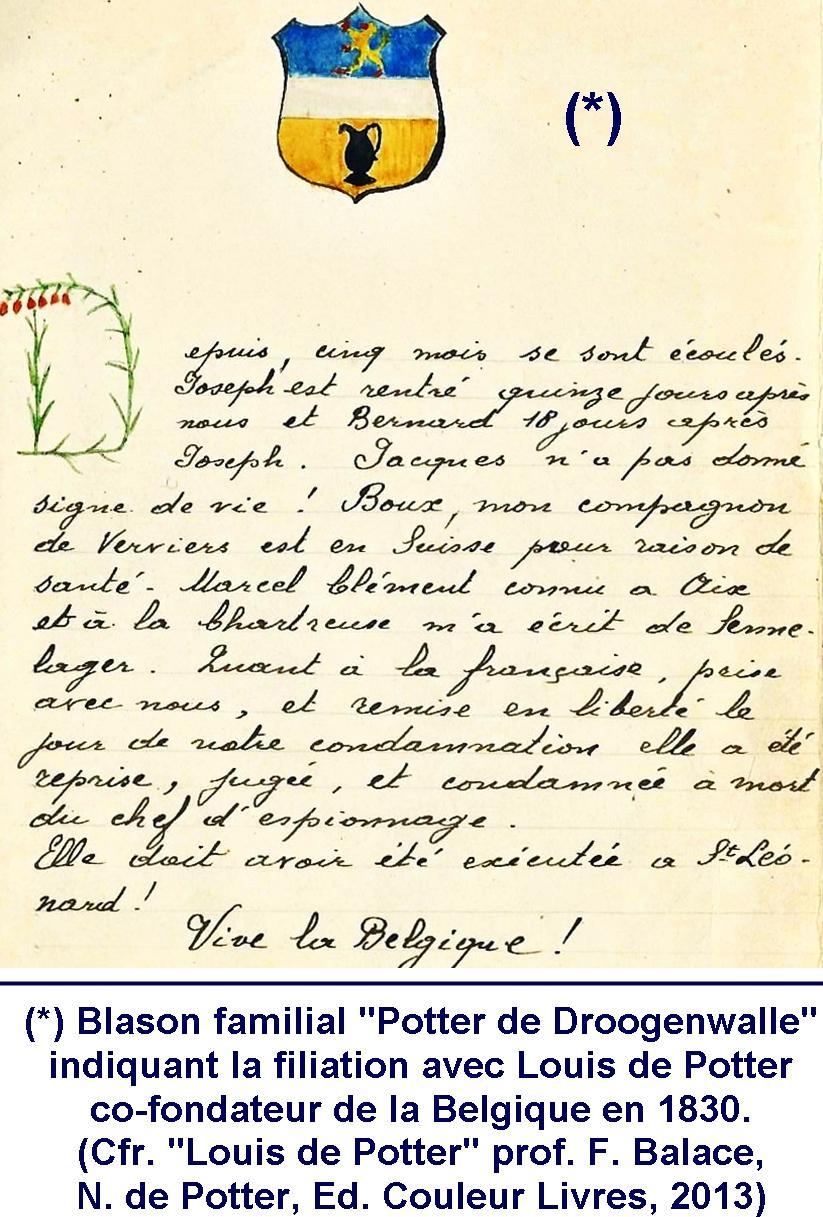 (*)
Depuis, cinq mois se sont écoulés.
Joseph est rentré quinze jours après
nous et Bernard 18 jours après
Joseph. Jacques n'a pas donné
signe de vie ! Boux, mon compagnon
de Verviers est en Suisse pour raison de
santé. Marcel Clément connu a Aix
et à la Chartreuse m'a écrit de Senne-
lager. Quant à la française, prise
avec nous, et remise en liberté le
jour de notre condamnation elle a été
reprise, jugée, et condamnée à mort
du chef d'espionnage.
Elle doit avoir été exécutée a St Léo-
nard !
Vive la Belgique !
(*) Blason familial "Potter de Droogenwalle"
indiquant la filiation avec Louis de Potter
co-fondateur de la Belgique en 1830.
(Cfr. "Louis de Potter" prof. F. Balace,
N. de Potter, Ed. Couleur Livres, 2013)